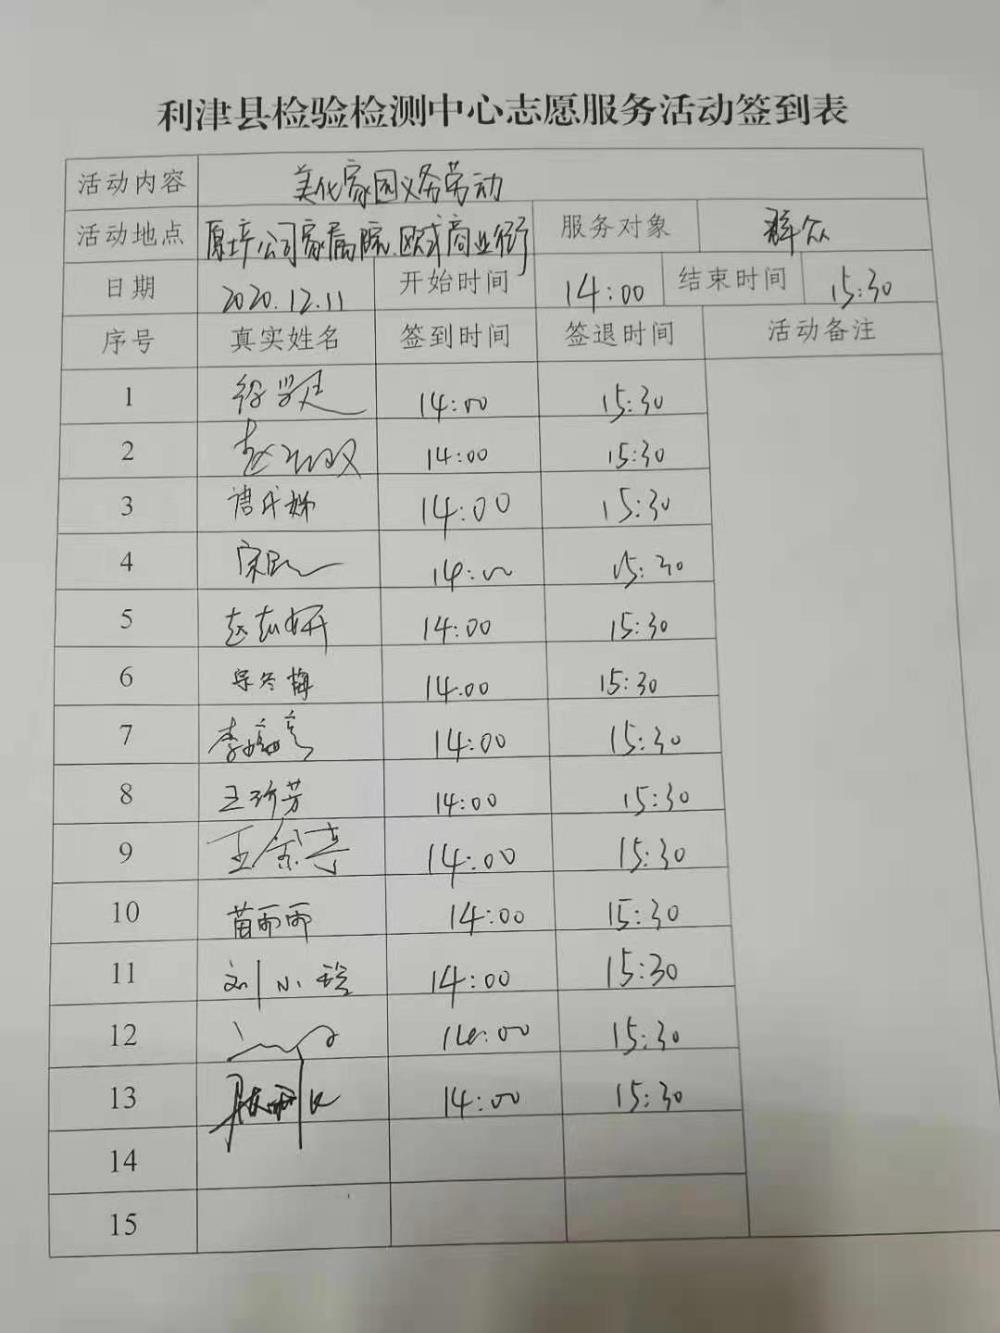 利津县检验检测中心志愿服务活动签到表
活动内容 美化家园义务劳动
活动地点 公司家属院.欧式商业街 服务对象 群众
日期 2020.12.11 开始时间 14:00 结束时间 15:30
序号 真实姓名 签到时间 签退时间 活动备注
1 14:00 15:30
2 14:00 15:30
3 14:00 15:30
4 14:00 15:30
5 14:00 15:30
6 宋冬梅 14:00 15:30
7 14:00 15:30
8 王珍芳 14:00 15:30
9 14:00 15:30
10 苗雨雨 14:00 15:30
11 刘小 14:00 15:30
12 14:00 15:30
13 14:00 15:30
14
15